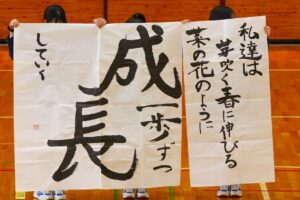 私達は
芽吹く春に伸びる
菜の花のように
一歩ずつ
成長
していく